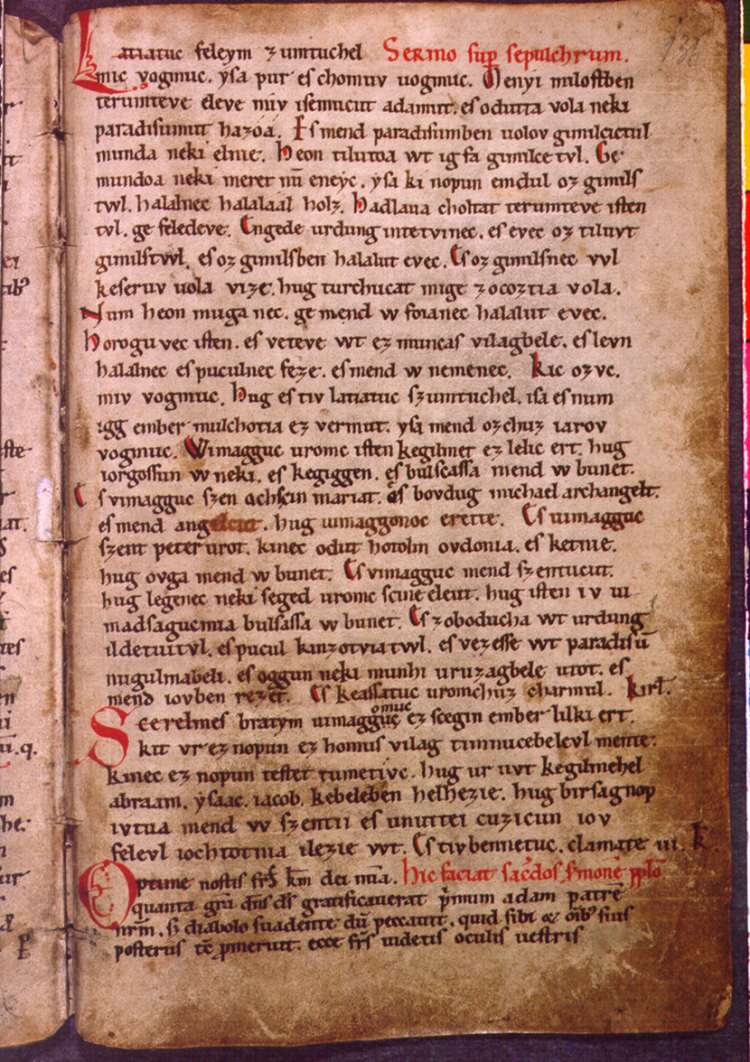 Latiatuc feleym zumtuchel Sermo sup sepulchrum.
mic vogmuc. ysa pur es chomuv uogmuc. Menyi milostben
terumteve eleve miv isemucut adamut. es odutta vola neki
paradisumut hazoa. Es mend paradisumben uolov gimilcictul
munda neki elnie. Heon tilutoa wt ig fa gimilce tvl. Ge
mundoa neki meret nū eneyc. ysa ki nopun emdul oz gimils
twl. halalnec halalaal holz. Hadlaua choltat terumteve isten
tvl. ge feledeve. Engede urdung intetvinec. es evec oz tiluvt
gimilstwl. es oz gimilsben halalut evec. Es oz gimilsnec vvl
keseruv uola vize. hug turchucat mige zocoztia vola.
Num heon muga nec. ge mend w foianec halalut evec.
Horogu vec isten. es veteve wt ez muncas vilagbele. es levn
halalnec es puculnec feze. es mend w nemenec. Kic ozvc.
miv vogmuc. Hug es tiv latiatuc szumtuchel. isa es num
igg ember mulchotia ez vermut. ysa mend ozchuz iarov
vogmuc. Wimagguc uromc isten kegilmet ez lelic ert. hug
iorgossun w neki. es kegiggen. es bulscassa mend w bunet.
Es vimagguc szen achscin mariat. es bovdug michael archangelt.
es mend angelcut. hug uimaggonoc erette. Es uimagguc
szent peter urot. kinec odut hotolm ovdonia. es ketnie.
hug ovga mend w bunet. Es vimagguc mend szentucut.
hug legenec neki seged uromc scine eleut. hug isten iv ui
madsagucmia bulsassa w bunet. Es zoboducha wt urdung
ildetuitvl. es pucul kinzotviatwl. es vezesse wt paradisū
nugulmabeli. es oggun neki munhi uruzagbele utot. es
mend iovben rezet. Es keassatuc uromchuz charmul. kirl̄.
Scerelmes bratym uimaggomuc ez scegin ember lilki ert.
kit vr ez nopun ez homus vilag timnucebelevl mente.
kinec ez nopun testet tumetivc. hug ur uvt kegilmehel
abraam. ysaac. iacob. kebeleben helhezie. hug birsagnop
ivtua mend w szentii es unuttei cuzicun iov
felevl iochtotnia ilezie wt. Es tiv bennetuc. clamate iii. k.
Optime nostis frs̄ km̄ dei mīa. hic faciat sac̄dos s̄monē pplō
quanta grā dn̄s ds̄ gratificauerat p̄mum adam patrē
nrm̄. s; diabolo suadente dū peccauit. quid sibi & oībꝰ suis
posteris tc̄ pmeruit. ecce frs̄ uidetis oculis uestris